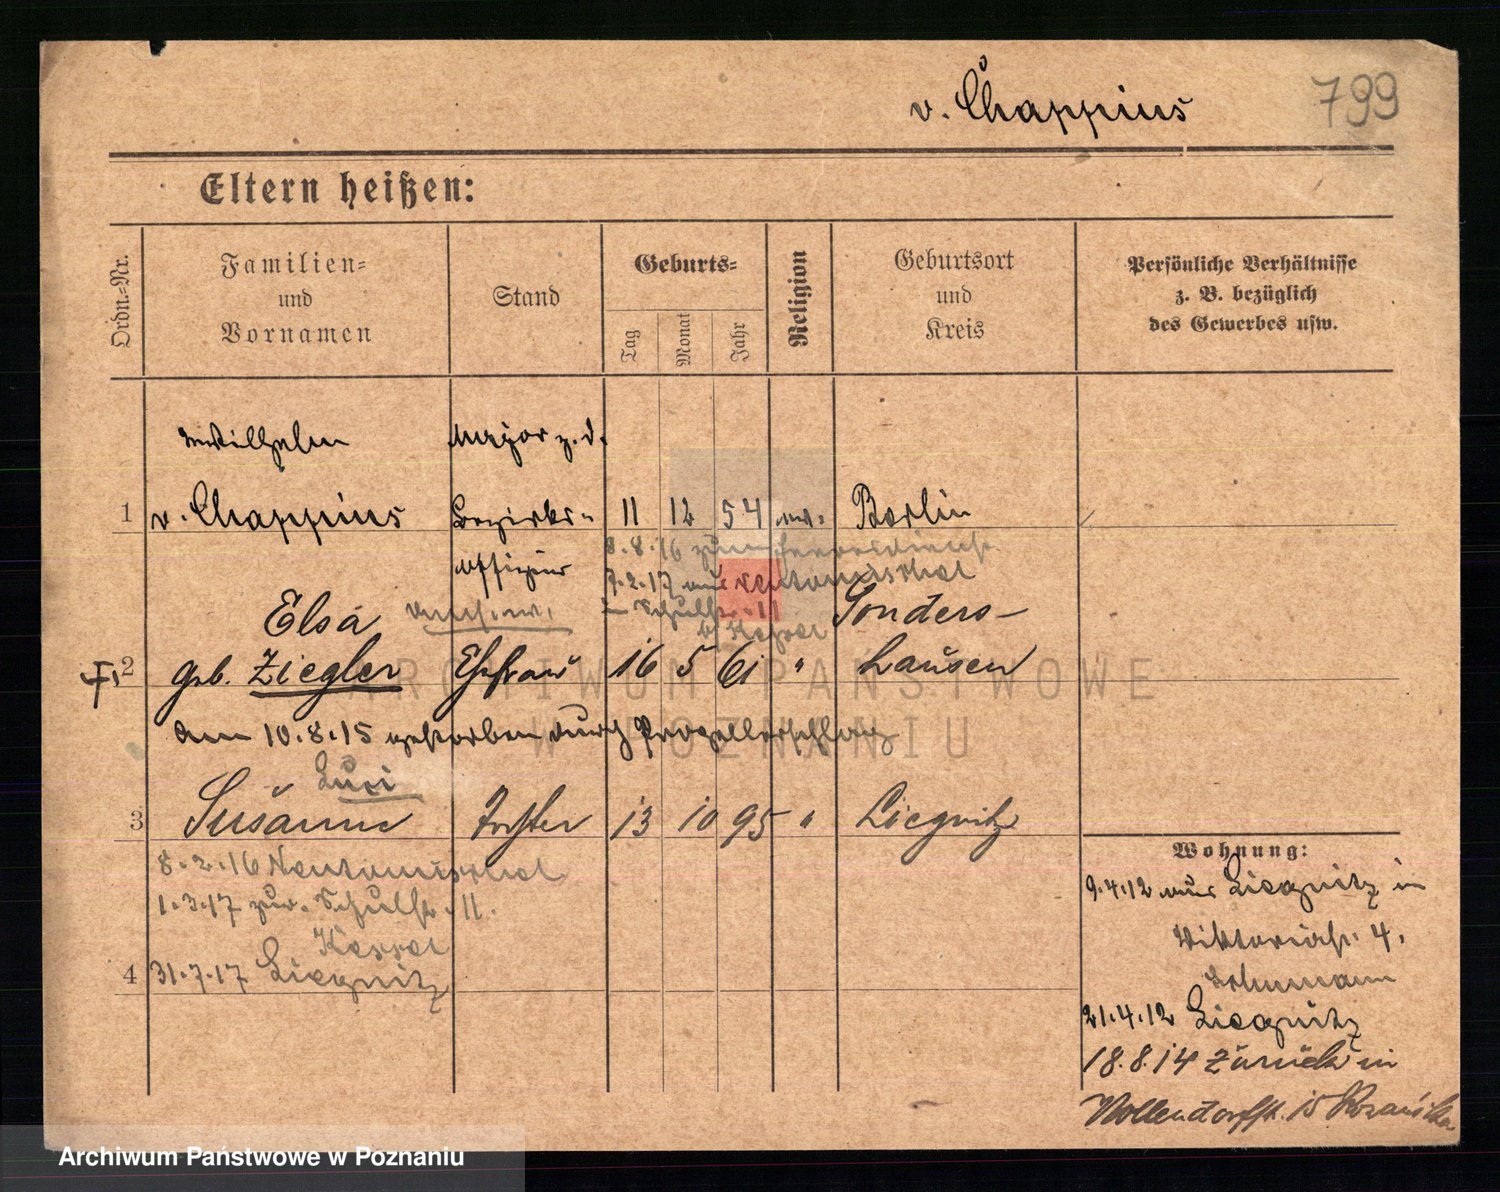 v. Chappuis
799
Eltern heißen:
Ordn.-Nr.
Familien-
und
Vornamen
Stand
Geburts-
Tag
Monat
Jahr
Religion
Geburtsort
und
Kreis
Persönliche Verhältnisse
z. B. bezüglich
des Gewerbes usw.
Wilhelm
Major z. D.
1 v. Chappuis Bezirks- 11 12 54 ev. Berlin
offizier
8.8.16 zum Heeresdienst
7.2.17 aus Neutomischel
in Schulstr. 11
b/ Kessel
Elsa
Sonders-
2 geb. Ziegler Ehefrau 16 5 61 " hausen
am 10.8.15 gestorben durch
Luci
3 Susanne Tochter 13 10 95 " Liegnitz
8.2.16 Neutomischel
1.3.17 zur. Schulstr. 11.
Kessel
4 31.7.17 Liegnitz
Wohnung:
9.4.12 aus Liegnitz in
Viktoriastr. 4,
21.4.12 Liegnitz
18.8.14 zurück in
Nollendorfstr. 15
ARCHIWUM PAŃSTWOWE
W POZNANIU
Archiwum Państwowe w Poznaniu